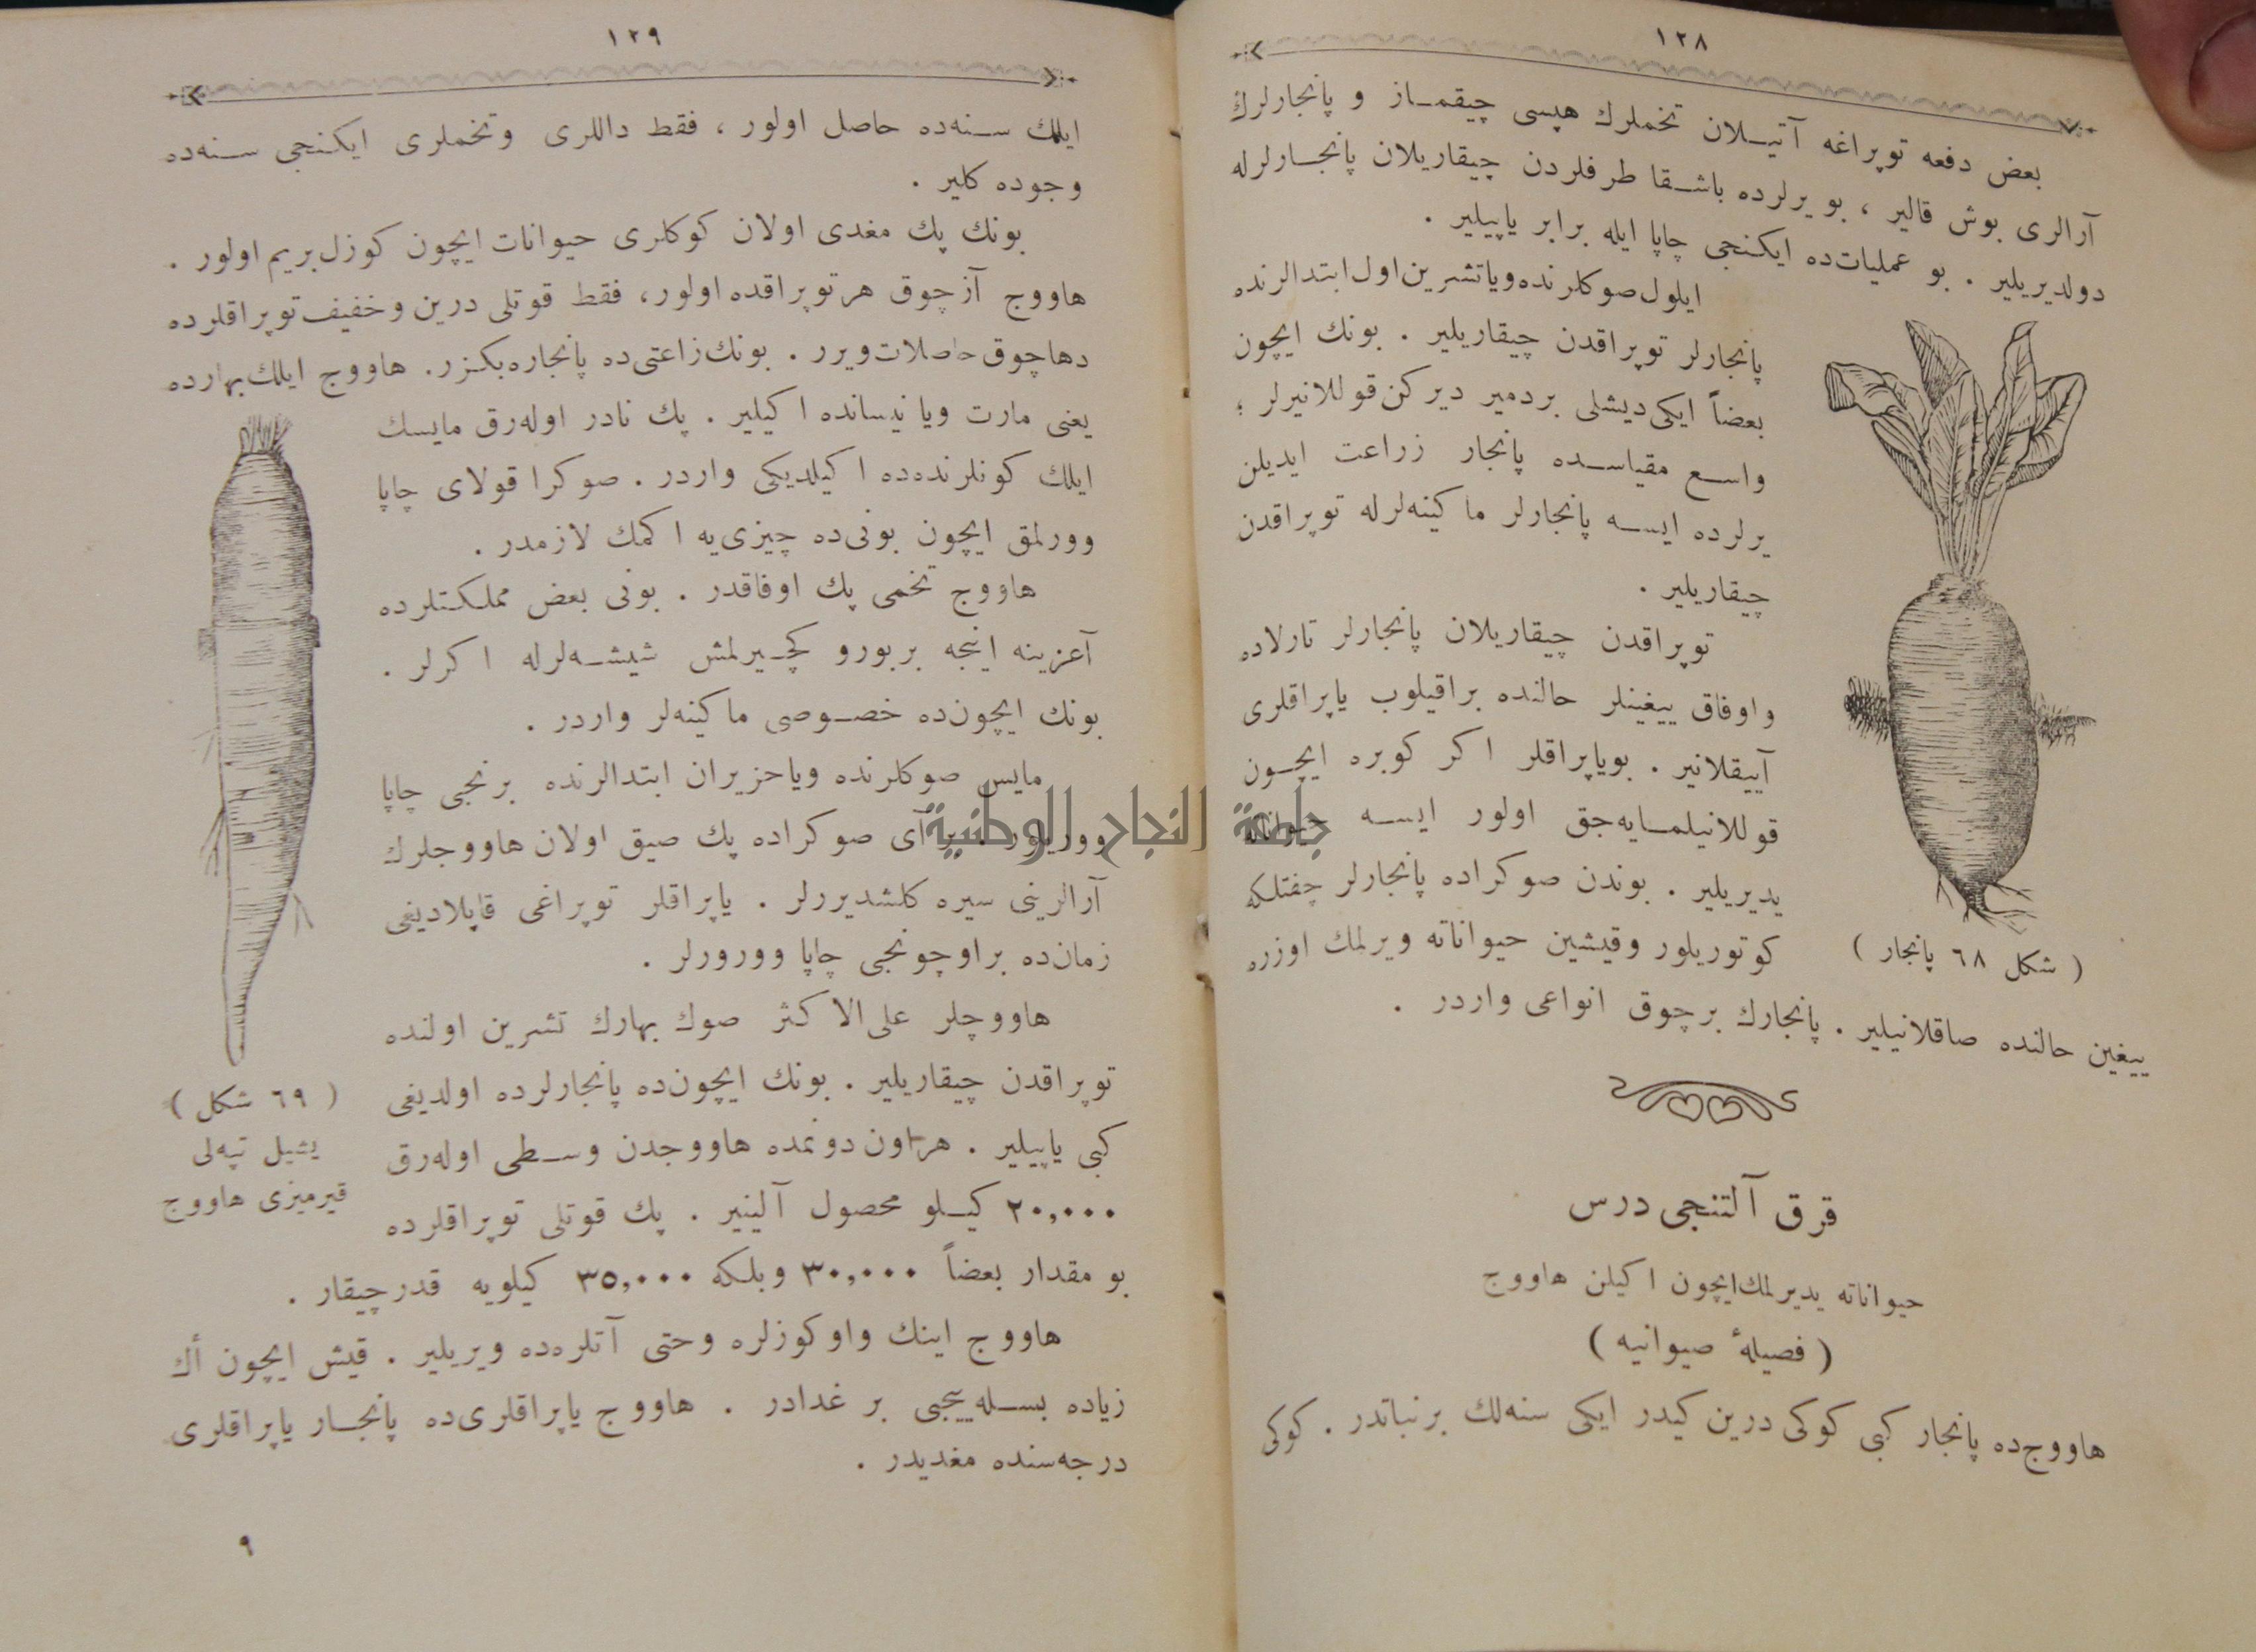 ١٢٨
بعض دفعه توپراغه آتيــلان تخملرك هپسى چيقمــاز و پانجارلرك
آرالرى بوش قالير ، بو يرلرده باشــقا طرفلردن چيقاريلان پانجــارلرله
دولديريلير . بو عمليات‌ده ايكنجى چاپا ايله برابر ياپيلير .
ايلول صوكلرنده وياتشرين اول ابتدالرنده
پانجارلر توپراقدن چيقاريلير . بونك ايچون
بعضاً ايكى ديشلى بر دمير ديركن قوللانيرلر ؛
واســع مقياســده پانجار زراعت ايديلن
يرلرده ايســه پانجارلر ماكينه‌لرله توپراقدن
چيقاريلير .
توپراقدن چيقاريلان پانجارلر تارلاده
واوفاق ييغينلر حالنده براقيلوب ياپراقلرى
آييقلانير . بوياپراقلر اكر كوبره ايچــون
قوللانيلمــايه‌جق اولور ايســه حيواناته
يديريلير . بوندن صوكراده پانجارلر چفتلكه
كوتوريلور وقيشين حيواناته ويرلمك اوزره
ييغين حالنده صاقلانيلير . پانجارك برچوق انواعى واردر .
( شكل ٦٨ پانجار )
قرق آلتنجى درس
حيواناته يديرلمك ايچون اكيلن هاووج
( فصيلهٔ صيوانيه )
هاووج‌ده پانجار كبى كوكى درين كيدر ايكى سنه‌لك بر نباتدر . كوكى
١٢٩
ايلك ســنه‌ده حاصل اولور ، فقط داللرى وتخملرى ايكــنجى ســنه‌ده
وجوده كلير .
بونك پك مغدى اولان كوكلرى حيوانات ايچون كوزل بريم اولور .
هاووج آز چوق هر توپراقده اولور، فقط قوتلى درين وخفيف توپراقلرده
دها چوق حاصلات ويرر . بونك زراعتى ده پانجاره بكزر. هاووج ايلك بهارده
يعنى مارت ويا نيسانده اكيلير . پك نادر اوله‌رق مايسك
ايلك كونلرنده‌ده اكيلديكى واردر . صوكرا قولاى چاپا
وورلمق ايچون بونى‌ده چيزى‌يه اكمك لازمدر .
هاووج تخمى پك اوفاقدر . بونى بعض مملكتلرده
آغزينه اينجه بر بورو كچــيرلمش شيشــه‌لرله اكرلر .
بونك ايچون‌ده خصــوصى ماكينه‌لر واردر .
مايس صوكلرنده وياحزيران ابتدالرنده برنجى چاپا
ووريلور . بر آى صوكراده پك صيق اولان هاووجلرك
آرالرينى سيره كلشديررلر . ياپراقلر توپراغى قاپلاديغى
زمان‌ده بر اوچونجى چاپا وورورلر .
هاووچلر على‌الاكثر صوك بهارك تشرين اولنده
توپراقدن چيقاريلير . بونك ايچون‌ده پانجارلرده اولديغى
كبى ياپيلير . هر اون دونمده هاووجدن وســطى اوله‌رق
٢٠,٠٠٠ كيــلو محصول آلينير . پك قوتلى توپراقلرده
بو مقدار بعضاً ٣٠,٠٠٠ وبلكه ٣٥,٠٠٠ كيلويه قدر چيقار .
هاووج اينك واوكوزلره وحتى آتلره‌ده ويريلير . قيش ايچون أك
زياده بســله‌ييجى بر غدادر . هاووج ياپراقلرى‌ده پانجــار ياپراقلرى
درجه‌سنده مغديدر .
( ٦٩ شكل )
يشيل تپه‌لى
قيرميزى هاووج
٩
جامعة النجاح الوطنية